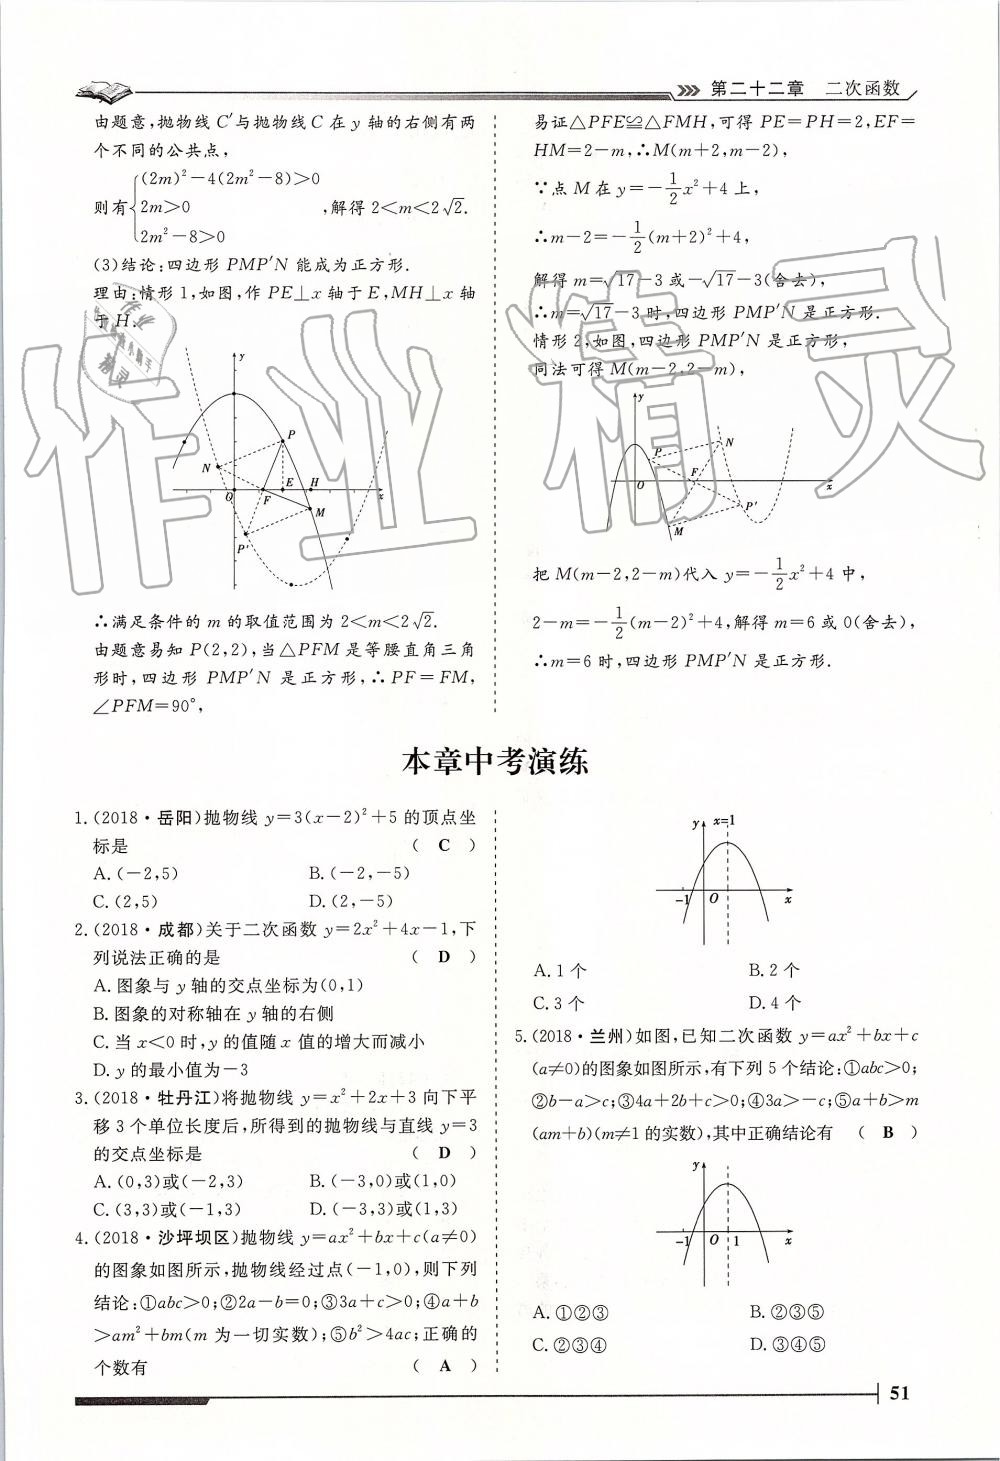 第二十二章 二次函数
由题意,抛物线 C′与抛物线 C 在 y 轴的右侧有两
个不同的公共点,
则有{(2m)²-4(2m²-8)>0
2m>0
2m²-8>0 ,解得 2<m<2√2.
(3)结论:四边形 PMP′N 能成为正方形.
理由:情形 1,如图,作 PE⊥x 轴于 E,MH⊥x 轴
于 H.
y
P
N
E H
O F x
M
P′
∴满足条件的 m 的取值范围为 2<m<2√2.
由题意易知 P(2,2),当△PFM 是等腰直角三角
形时,四边形 PMP′N 是正方形,∴PF=FM,
∠PFM=90°,
易证△PFE≌△FMH,可得 PE=PH=2,EF=
HM=2-m,∴M(m+2,m-2),
∵点 M 在 y=-1/2x²+4 上,
∴m-2=-1/2(m+2)²+4,
解得 m=√17-3 或-√17-3(舍去),
∴m=√17-3 时,四边形 PMP′N 是正方形.
情形 2,如图,四边形 PMP′N 是正方形,
同法可得 M(m-2,2-m),
y
P N
F
O x
P′
M
把 M(m-2,2-m)代入 y=-1/2x²+4 中,
2-m=-1/2(m-2)²+4,解得 m=6 或 0(舍去),
∴m=6 时,四边形 PMP′N 是正方形.
本章中考演练
1.(2018·岳阳)抛物线 y=3(x-2)²+5 的顶点坐
标是 ( C )
A.(-2,5) B.(-2,-5)
C.(2,5) D.(2,-5)
2.(2018·成都)关于二次函数 y=2x²+4x-1,下
列说法正确的是 ( D )
A.图象与 y 轴的交点坐标为(0,1)
B.图象的对称轴在 y 轴的右侧
C.当 x<0 时,y 的值随 x 值的增大而减小
D.y 的最小值为-3
3.(2018·牡丹江)将抛物线 y=x²+2x+3 向下平
移 3 个单位长度后,所得到的抛物线与直线 y=3
的交点坐标是 ( D )
A.(0,3)或(-2,3) B.(-3,0)或(1,0)
C.(3,3)或(-1,3) D.(-3,3)或(1,3)
4.(2018·沙坪坝区)抛物线 y=ax²+bx+c(a≠0)
的图象如图所示,抛物线经过点(-1,0),则下列
结论:①abc>0;②2a-b=0;③3a+c>0;④a+b
>am²+bm(m 为一切实数);⑤b²>4ac;正确的
个数有 ( A )
y x=1
-1 O x
A.1 个 B.2 个
C.3 个 D.4 个
5.(2018·兰州)如图,已知二次函数 y=ax²+bx+c
(a≠0)的图象如图所示,有下列 5 个结论:①abc>0;
②b-a>c;③4a+2b+c>0;④3a>-c;⑤a+b>m
(am+b)(m≠1 的实数),其中正确结论有 ( B )
y
-1 O 1 x
A.①②③ B.②③⑤
C.②③④ D.③④⑤
51
作业精灵